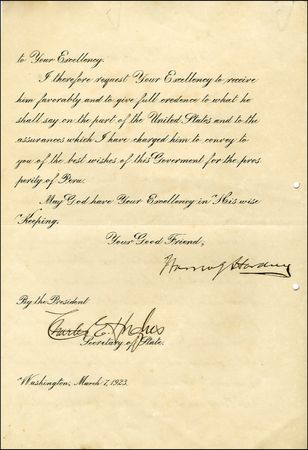 to Your Excellency.
I therefore request Your Excellency to receive
him favorably and to give full credence to what he
shall say on the part of the United States and to the
assurances which I have charged him to convey to
you of the best wishes of this Goverment for the pros
perity of Peru.
May God have Your Excellency in His wise
Keeping.
Your Good Friend,
Warren G Harding
By the President:
Charles E. Hughes
Secretary of State.
Washington, March 7, 1923.